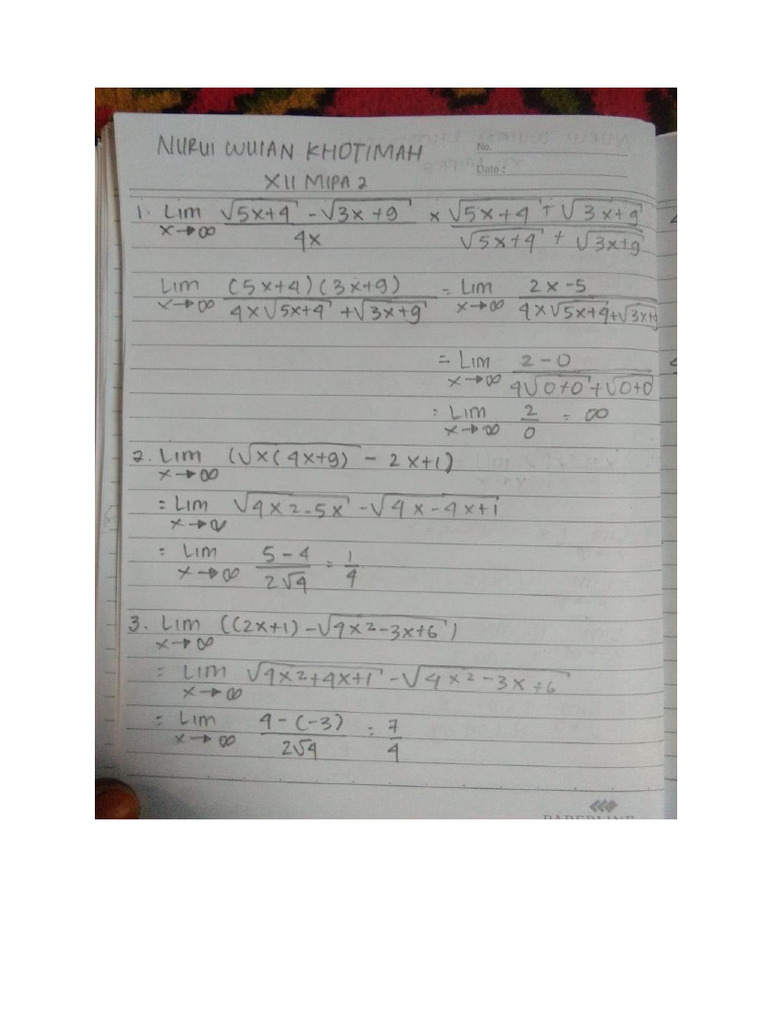 NURUL WULAN KHOTIMAH
No.
XII MIPA 2
Date :
1. Lim x→∞ (√(5x+4) - √(3x+9))/(4x) × (√(5x+4) + √(3x+9))/(√(5x+4) + √(3x+9))
Lim x→∞ ((5x+4)(3x+9))/(4x√(5x+4) + √(3x+9)) = Lim x→∞ (2x-5)/(4x√(5x+4)+√(3x+9))
= Lim x→∞ (2-0)/(4√(0+0)+√(0+0))
= Lim x→∞ 2/0 = ∞
2. Lim x→∞ (√(x(4x+9)) - 2x+1)
= Lim x→∞ √(4x2-5x) - √(4x-4x+1)
= Lim x→∞ (5-4)/(2√4) = 1/4
3. Lim x→∞ ((2x+1) - √(4x2-3x+6))
= Lim x→∞ √(4x2+4x+1) - √(4x2-3x+6)
= Lim x→∞ (4-(-3))/(2√4) = 7/4
PAPERLINE